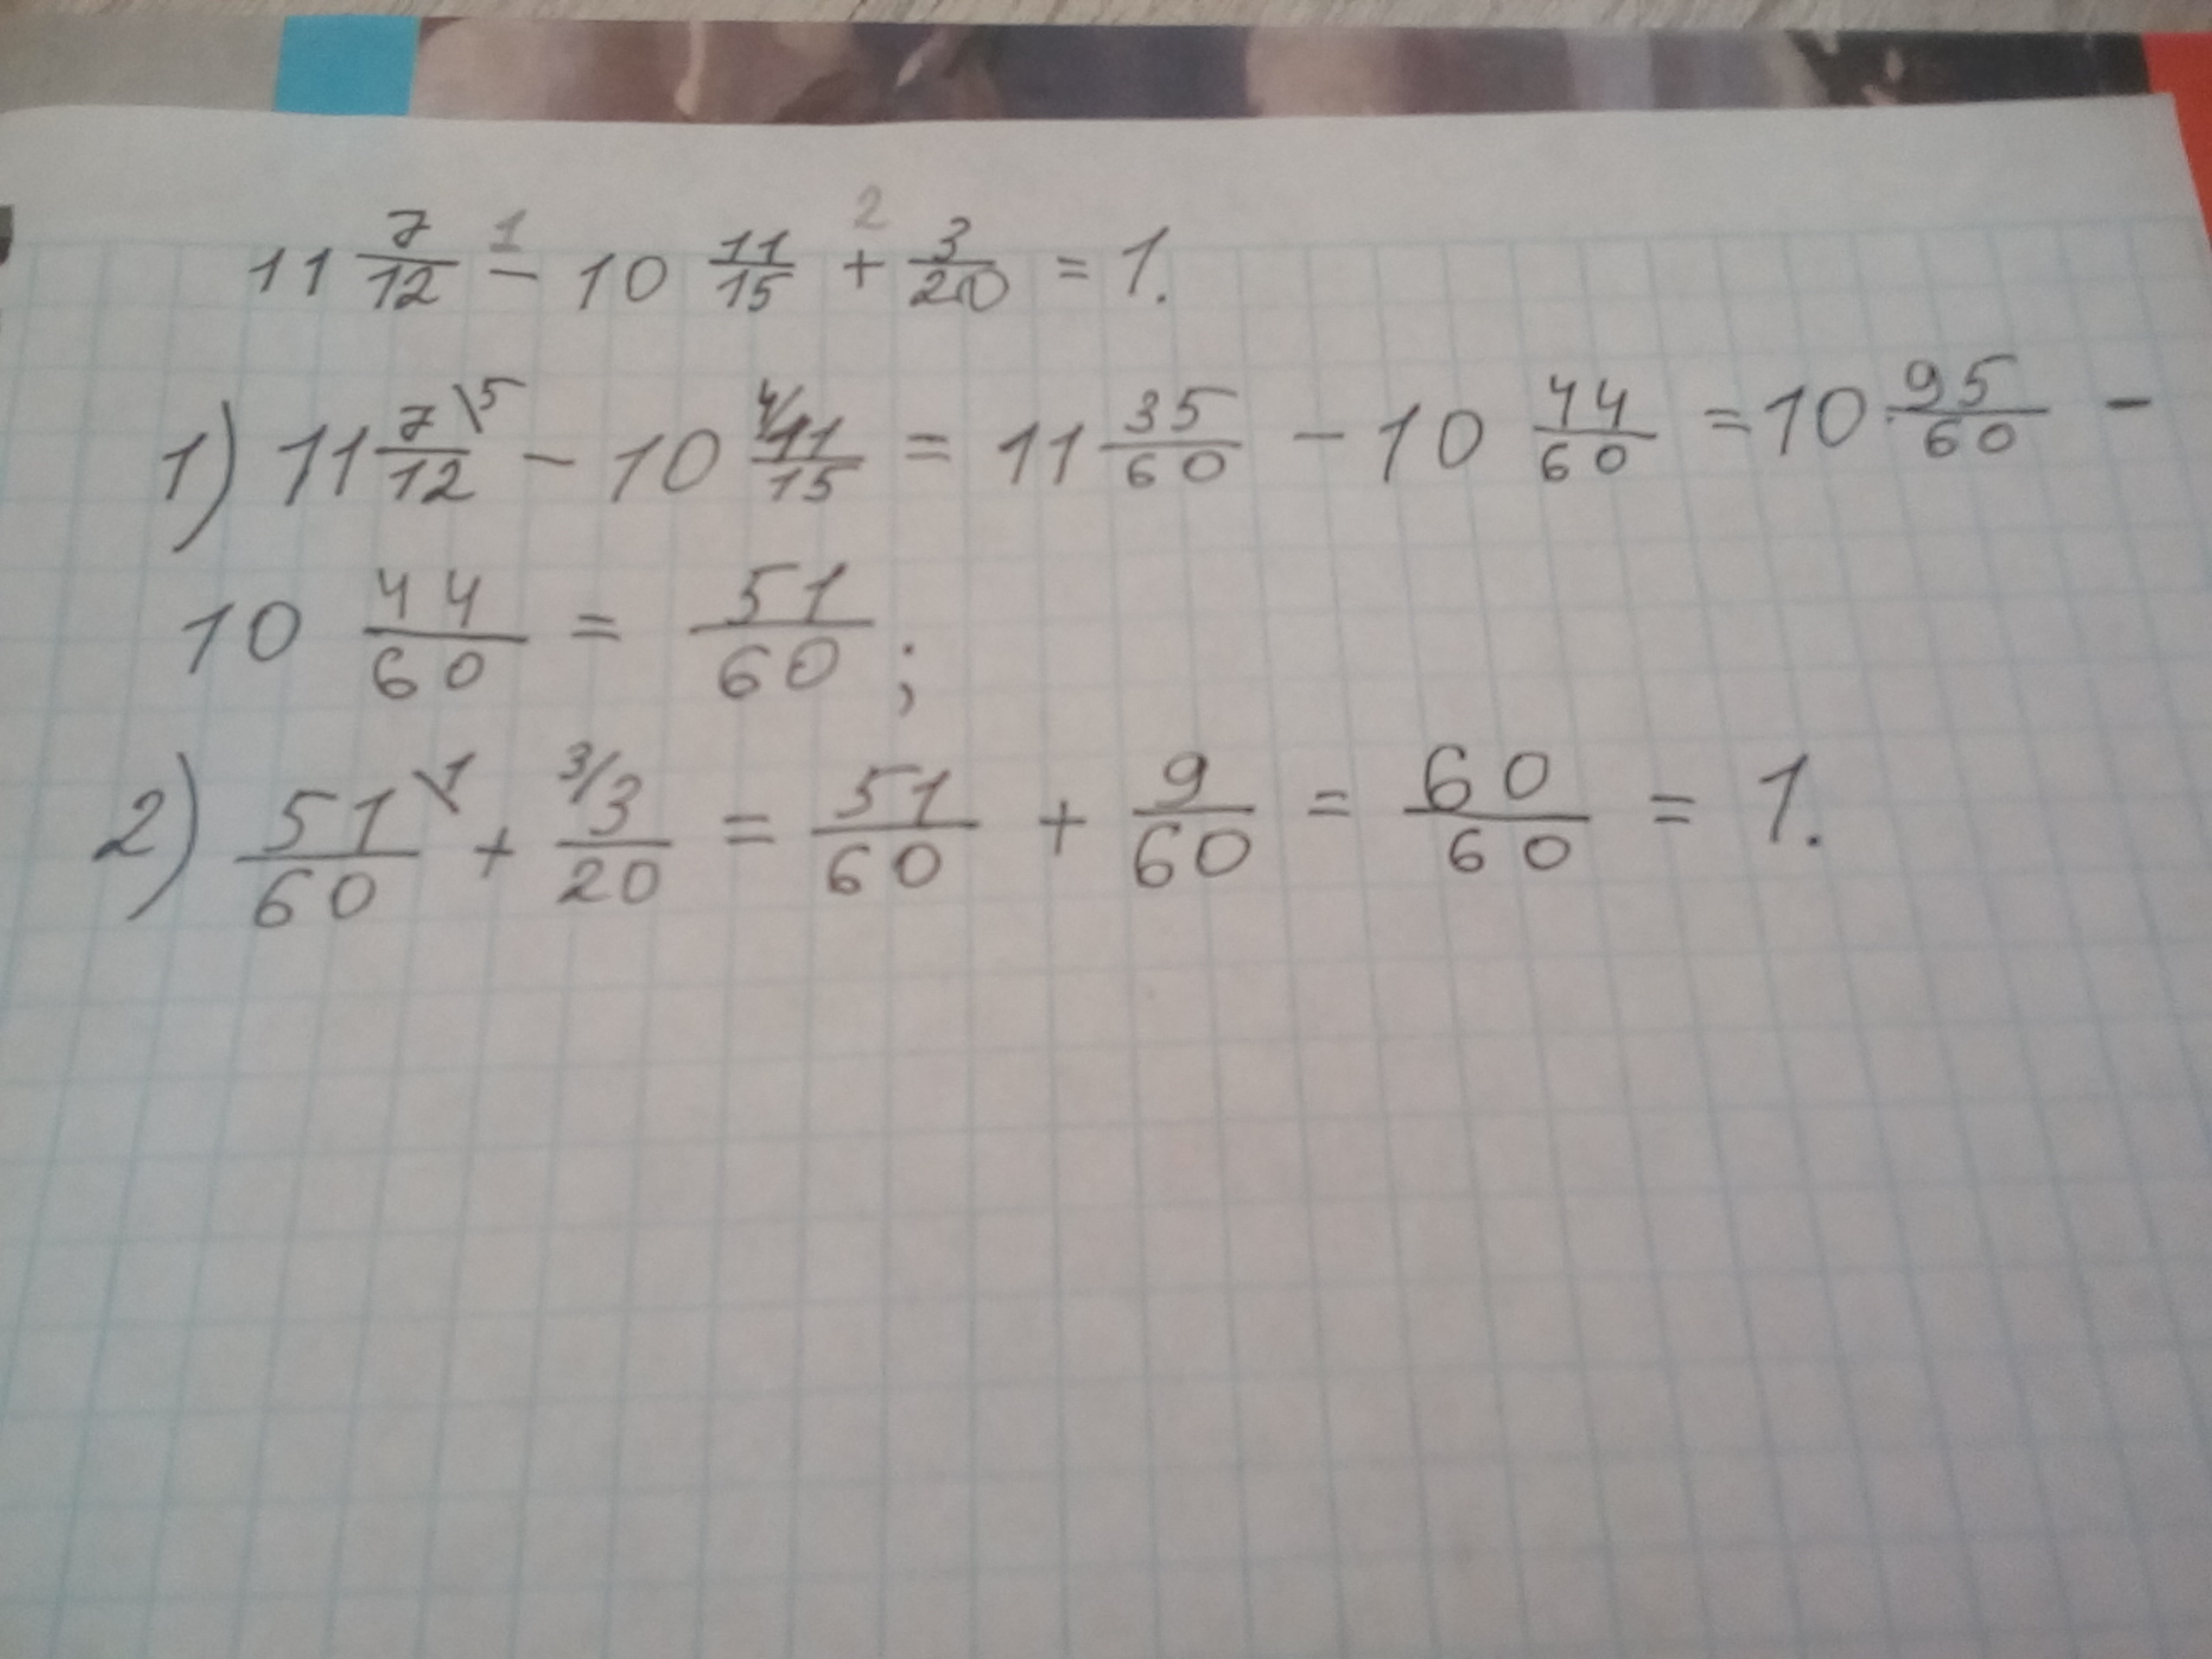 11 7/12 - 10 11/15 + 3/20 = 1.
1 2
1) 11 7\5/12 - 10 4/11/15 = 11 35/60 - 10 44/60 = 10 95/60 -
10 44/60 = 51/60 ;
2) 51\1/60 + 3/3/20 = 51/60 + 9/60 = 60/60 = 1.